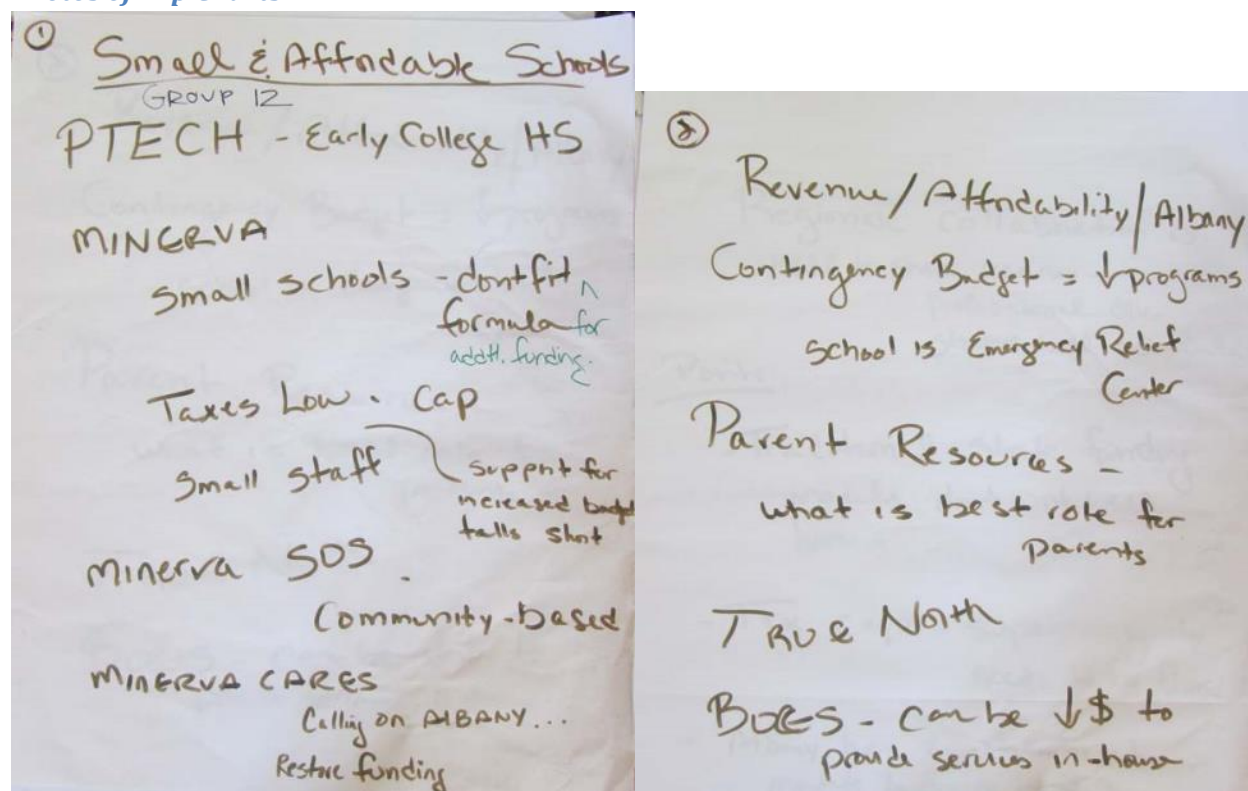 ①
Small & Affordable Schools
GROUP 12
PTECH - Early College HS
MINERVA
Small schools - dont fit ^
formula for
addtl. funding.
Taxes Low . Cap
Small staff
support for
increased budget
falls short
Minerva SOS .
Community-based
MINERVA CARES
Calling on ALBANY...
Restore funding
②
Revenue/Affordability/Albany
Contingency Budget = ↓programs
School is Emergency Relief
Center
Parent Resources -
what is best role for
parents
TRUE North
BOCES - can be ↓$ to
provide services in-house